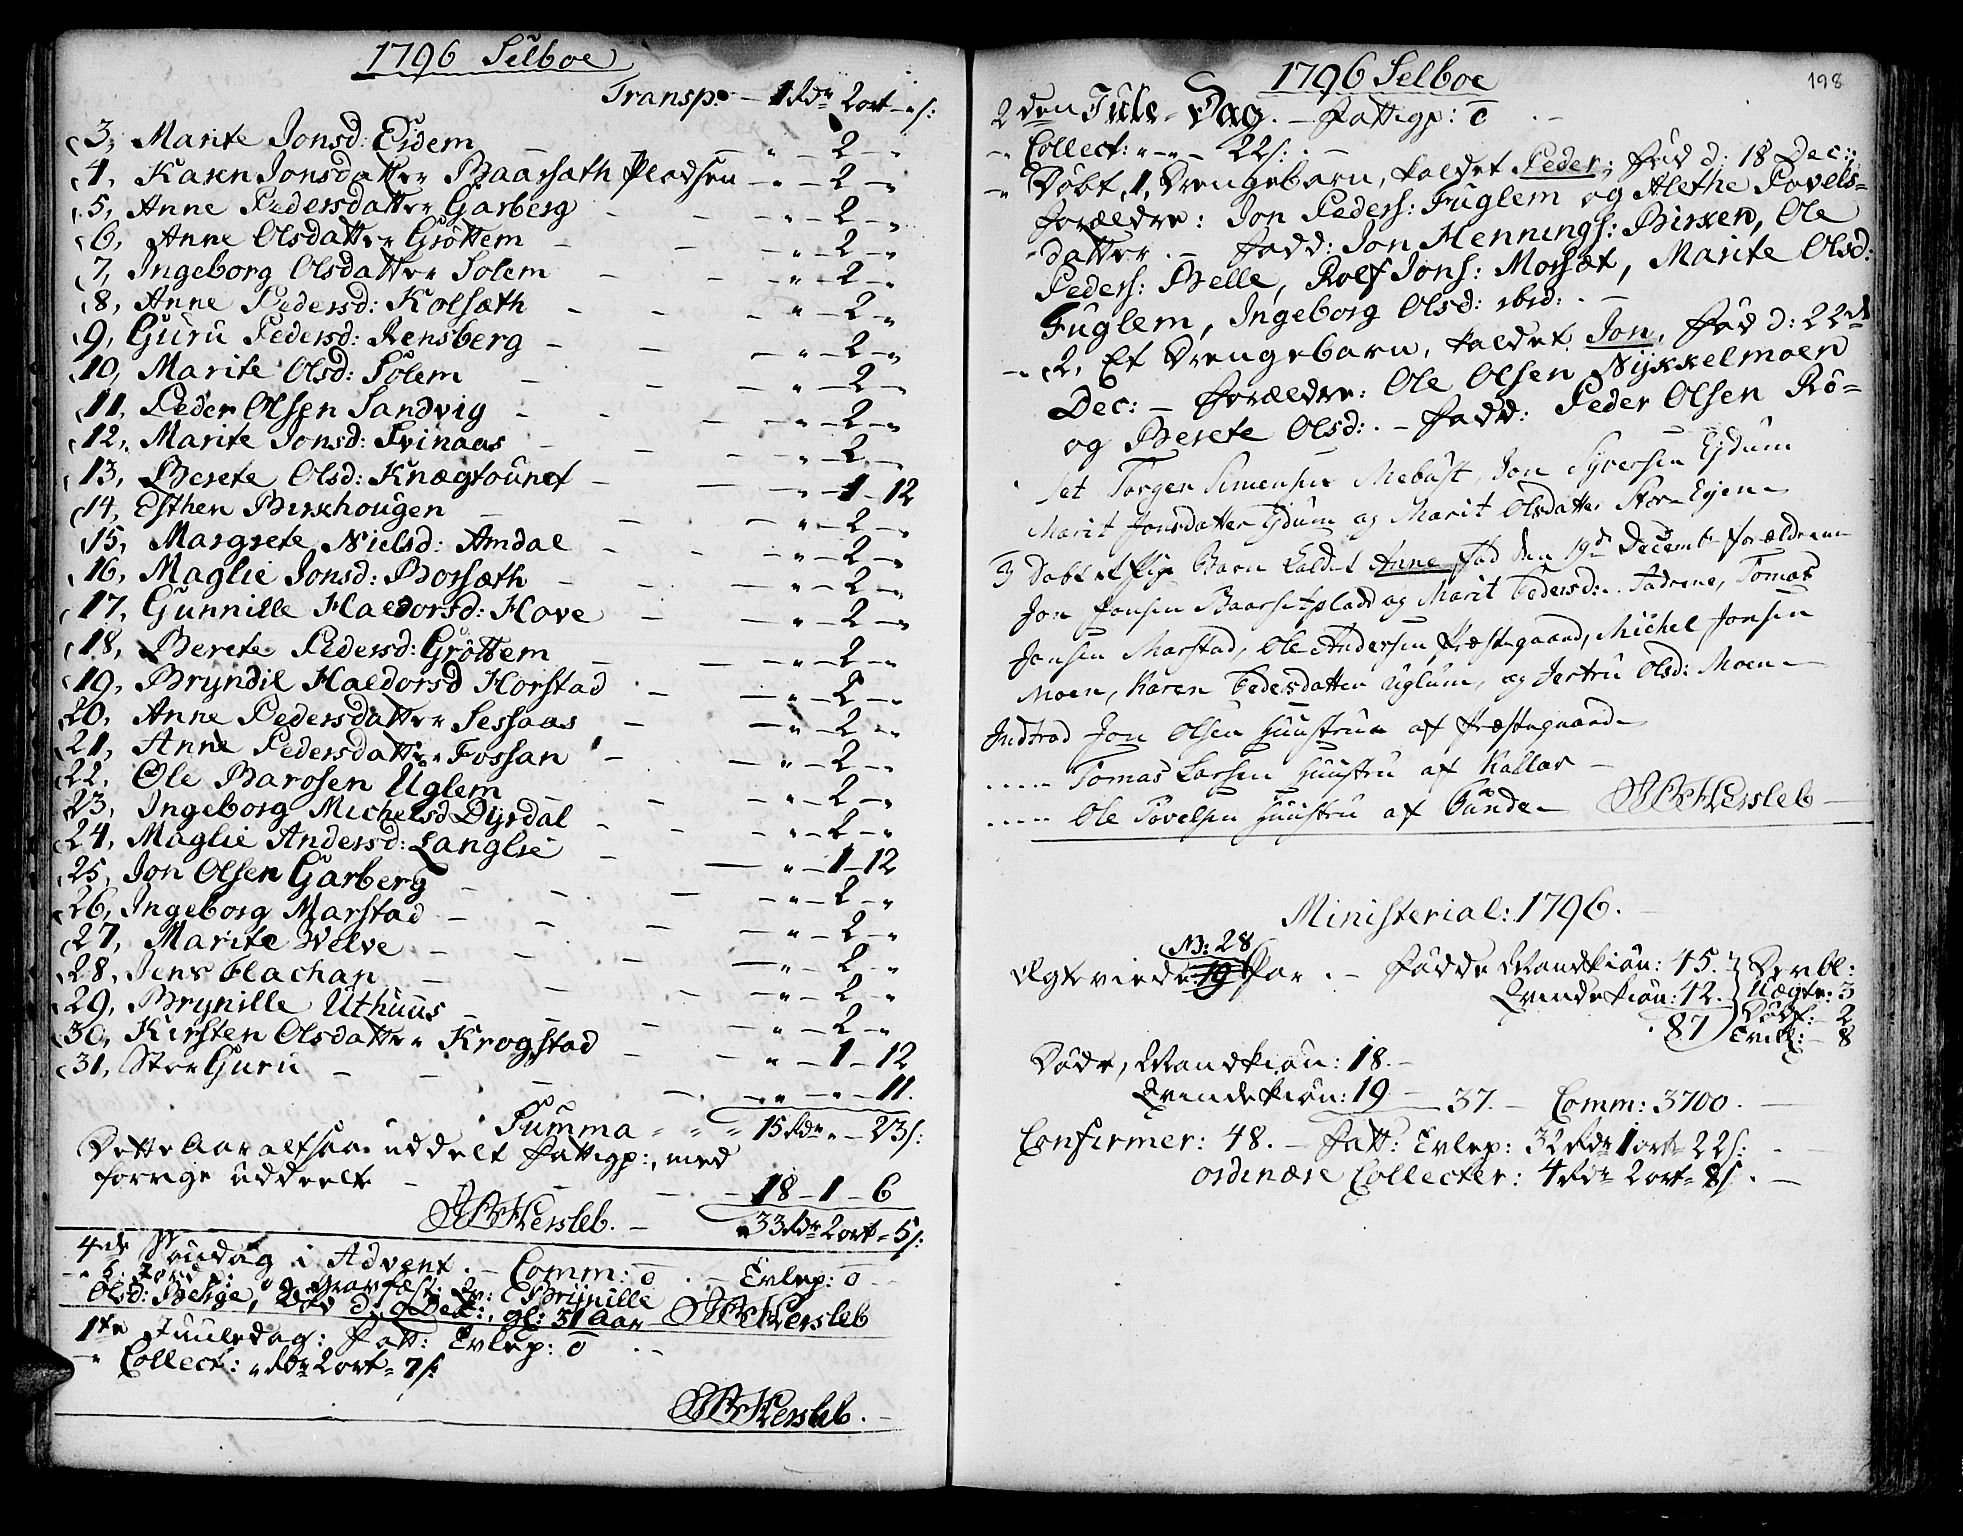 1796 Selboe
Transp: – 1 Rdr 2 ort – " s:
3, Marite Jonsd: Eidem – – " – 2 – "
4, Karen Jonsdatter Baarsæth Pladsen – " – 2 – "
5, Anne Pedersdatter Garberg – – " – 2 – "
6, Anne Olsdatter Grøttem – – " – 2 – "
7, Ingeborg Olsdatter Solem – – " – 2 – "
8, Anne Pedersd: Kolsæth – – " – 2 – "
9, Guru Pedersd: Rensberg – – " – 2 – "
10, Marite Olsd: Solem – – " – 2 – "
11, Peder Olsen Sandvig – – " – 2 – "
12, Marite Jonsd: Svinaas – – " – 2 – "
13, Berete Olsd: Knægtounet – – " – 1 – 12
14, Esther Birkhougen – – " – 2 – "
15, Margrete Nielsd: Amdal – – " – 2 – "
16, Maglie Jonsd: Borsæth – – " – 2 – "
17, Gunnille Haldorsd: Hove – – " – 2 – "
18, Berete Pedersd: Grøttem – – " – 2 – "
19, Bryndil Haldorsd Horstad – – " – 2 – "
20, Anne Pedersdatter Sessaas – – " – 2 – "
21, Anne Pedersdatter Fossan – – " – 2 – "
22, Ole Barosen Uglem – – " – 2 – "
23, Ingeborg Michelsd Dyrdal – – " – 2 – "
24, Maglie Andersd: Langlie – – " – 1 – 12
25, Jon Olsen Garberg – – " – 2 – "
26, Ingeborg Marstad – – " – 2 – "
27, Marite Velve – – " – 2 – "
28, Jens Flachan – – " – 2 – "
29, Brynille Uthuus – – " – 2 – "
30, Kirsten Olsdatter Krogstad – – " – 1 – 12
31, Store Guru – – " – " – 11.
Summa " " " 15 Rdr " – 23 s:
Dette Aar altsaa uddelt Fattigp:, med
forrige uddeelte – – 18 – 1 – 6
Hersleb. – 33 Rdr 2 ort – 5 s:
4de Søndag i Advent. – Comm: 0. – Evlep: 0
Jord: Brynille
Olsd: Berge, død d: Dec:, gl: 31 Aar Hersleb
1te Juuledag: Fatt: Evlep: 0
– " Collect: " Rdr 2 ort – 7 s:
Hersleb.
1796 Selboe
198
2den Jule-Dag. – Fattigp: 0
– " Collect: " – " – 22 s: . –
– " Døbt 1, Drengebarn, kaldet Peder, fød d: 18 Dec:,
Forældre: Jon Peders: Fuglem og Alethe Povels-
datter. – Fadd: Jon Hennings: Birken, Ole
Peders: Belle, Rolf Jons: Morsæt, Marite Olsd:
Fuglem, Ingeborg Olsd: ibid: . –
– " 2, Et Drengebarn, kaldet Jon, fød d: 22de
Dec: – Forældre: Ole Olsen Nykkelmoen
og Berete Olsd: . – Fadd: Peder Olsen Rø-
set Torger Simensen Mebust, Jon Syversen Eydum
Marit Jonsdatter Eydum og Marit Olsdatter Stor Eyen
3 Døbt et Pige Barn kaldet Anne fød den 19de Decemb: forældrene
Jon Jonsen Baarsetplads og Marit Pedersd: . Fadrene, Tomas
Jonsen Marstad, Ole Andersen Præstegaard, Michel Jonsen
Moen, Karen Pedersdatter Uglum, og Jertru Olsd: Moen
Indtrod Jon Olsen Huustrue af Præstegaard
. . . . . Tomas Larsen Huustru af Kallar
. . . . . Ole Povelsen Huustru af Hersleb
Ministerial: 1796.
N: 28
Ægteviede 19 Par . – Fødde Mandkiøn: 45. Derbl:
Qvindekiøn: 42. Uægte: 3
87 Dødf: – 2
Tvill: – 8
Døde, Mandkiøn: 18. –
Qvindekiøn: 19 – 37. – Comm: 3700. –
Confirmer: 48. – Fatt: Evlep: 32 Rdr 1 ort – 22 s: .
ordinære Collecter: 4 Rdr 2 ort – 8 s. –